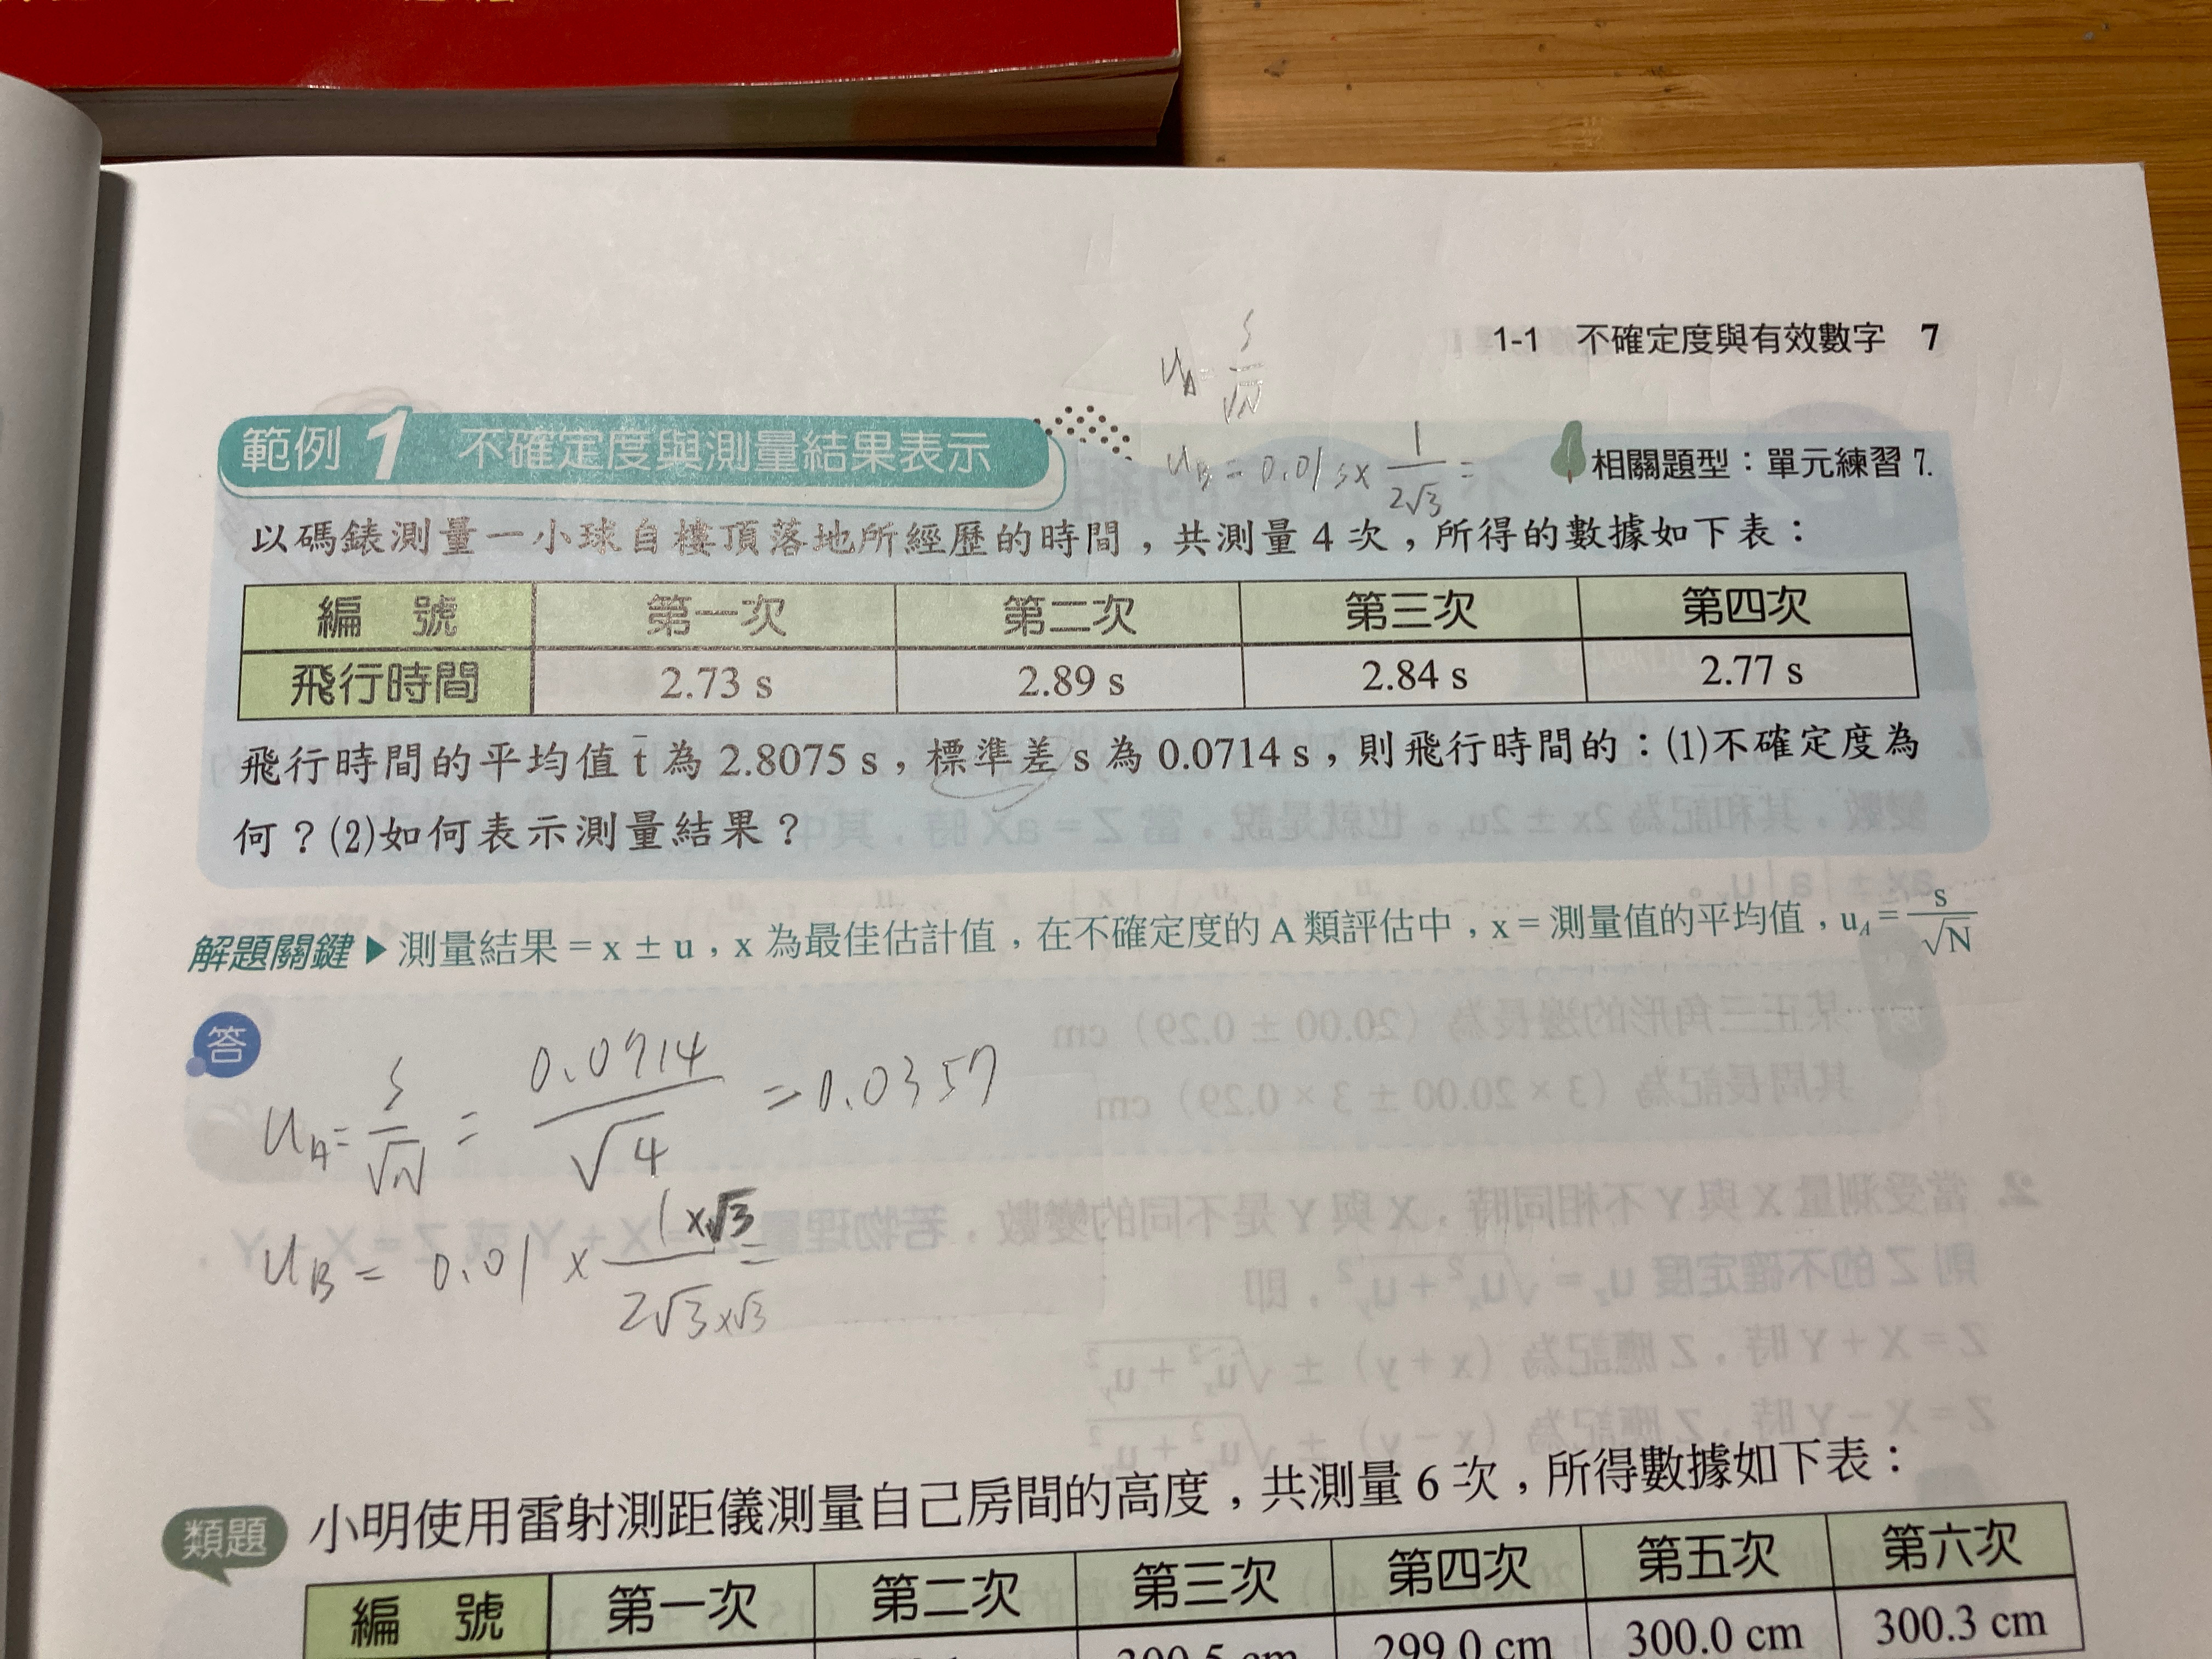 1-1 不確定度與有效數字 7
u_A = s/√N
範例 1 不確定度與測量結果表示
u_B = 0.01 s × 1/2√3 =
相關題型：單元練習 7.
以碼錶測量一小球自樓頂落地所經歷的時間，共測量 4 次，所得的數據如下表：
編 號 第一次 第二次 第三次 第四次
飛行時間 2.73 s 2.89 s 2.84 s 2.77 s
飛行時間的平均值 t̄ 為 2.8075 s，標準差 s 為 0.0714 s，則飛行時間的：(1)不確定度為
何？(2)如何表示測量結果？
解題關鍵▶測量結果 = x ± u，x 為最佳估計值，在不確定度的 A 類評估中，x = 測量值的平均值，u_A = s/√N
答
u_A = s/√N = 0.0714/√4 = 0.0357
u_B = 0.01 × 1×√3/2√3×√3 =
類題 小明使用雷射測距儀測量自己房間的高度，共測量 6 次，所得數據如下表：
編 號 第一次 第二次 第三次 第四次 第五次 第六次
300.5 cm 299.0 cm 300.0 cm 300.3 cm